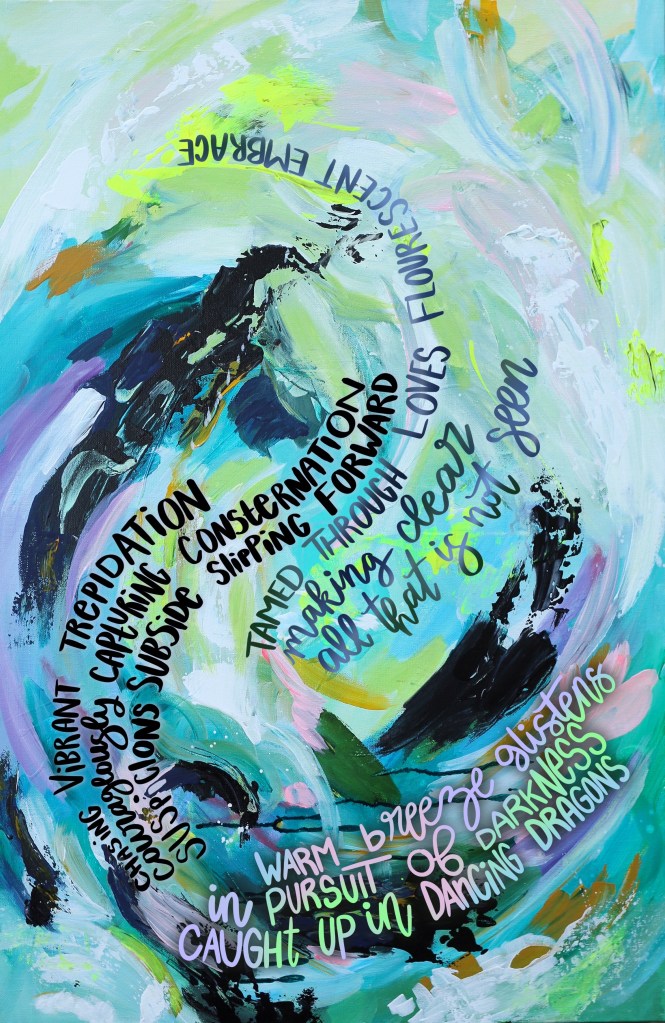 CHASING VIBRANT TREPIDATION
courageously CAPTURING CONSTERNATION
SUSPICIONS SUBSIDE SLIPPING FORWARD
TAMED THROUGH LOVES FLOURESCENT EMBRACE
making clear
all that is not seen
WARM breeze glistens
in PURSUIT OF DARKNESS
CAUGHT UP in DANCING DRAGONS